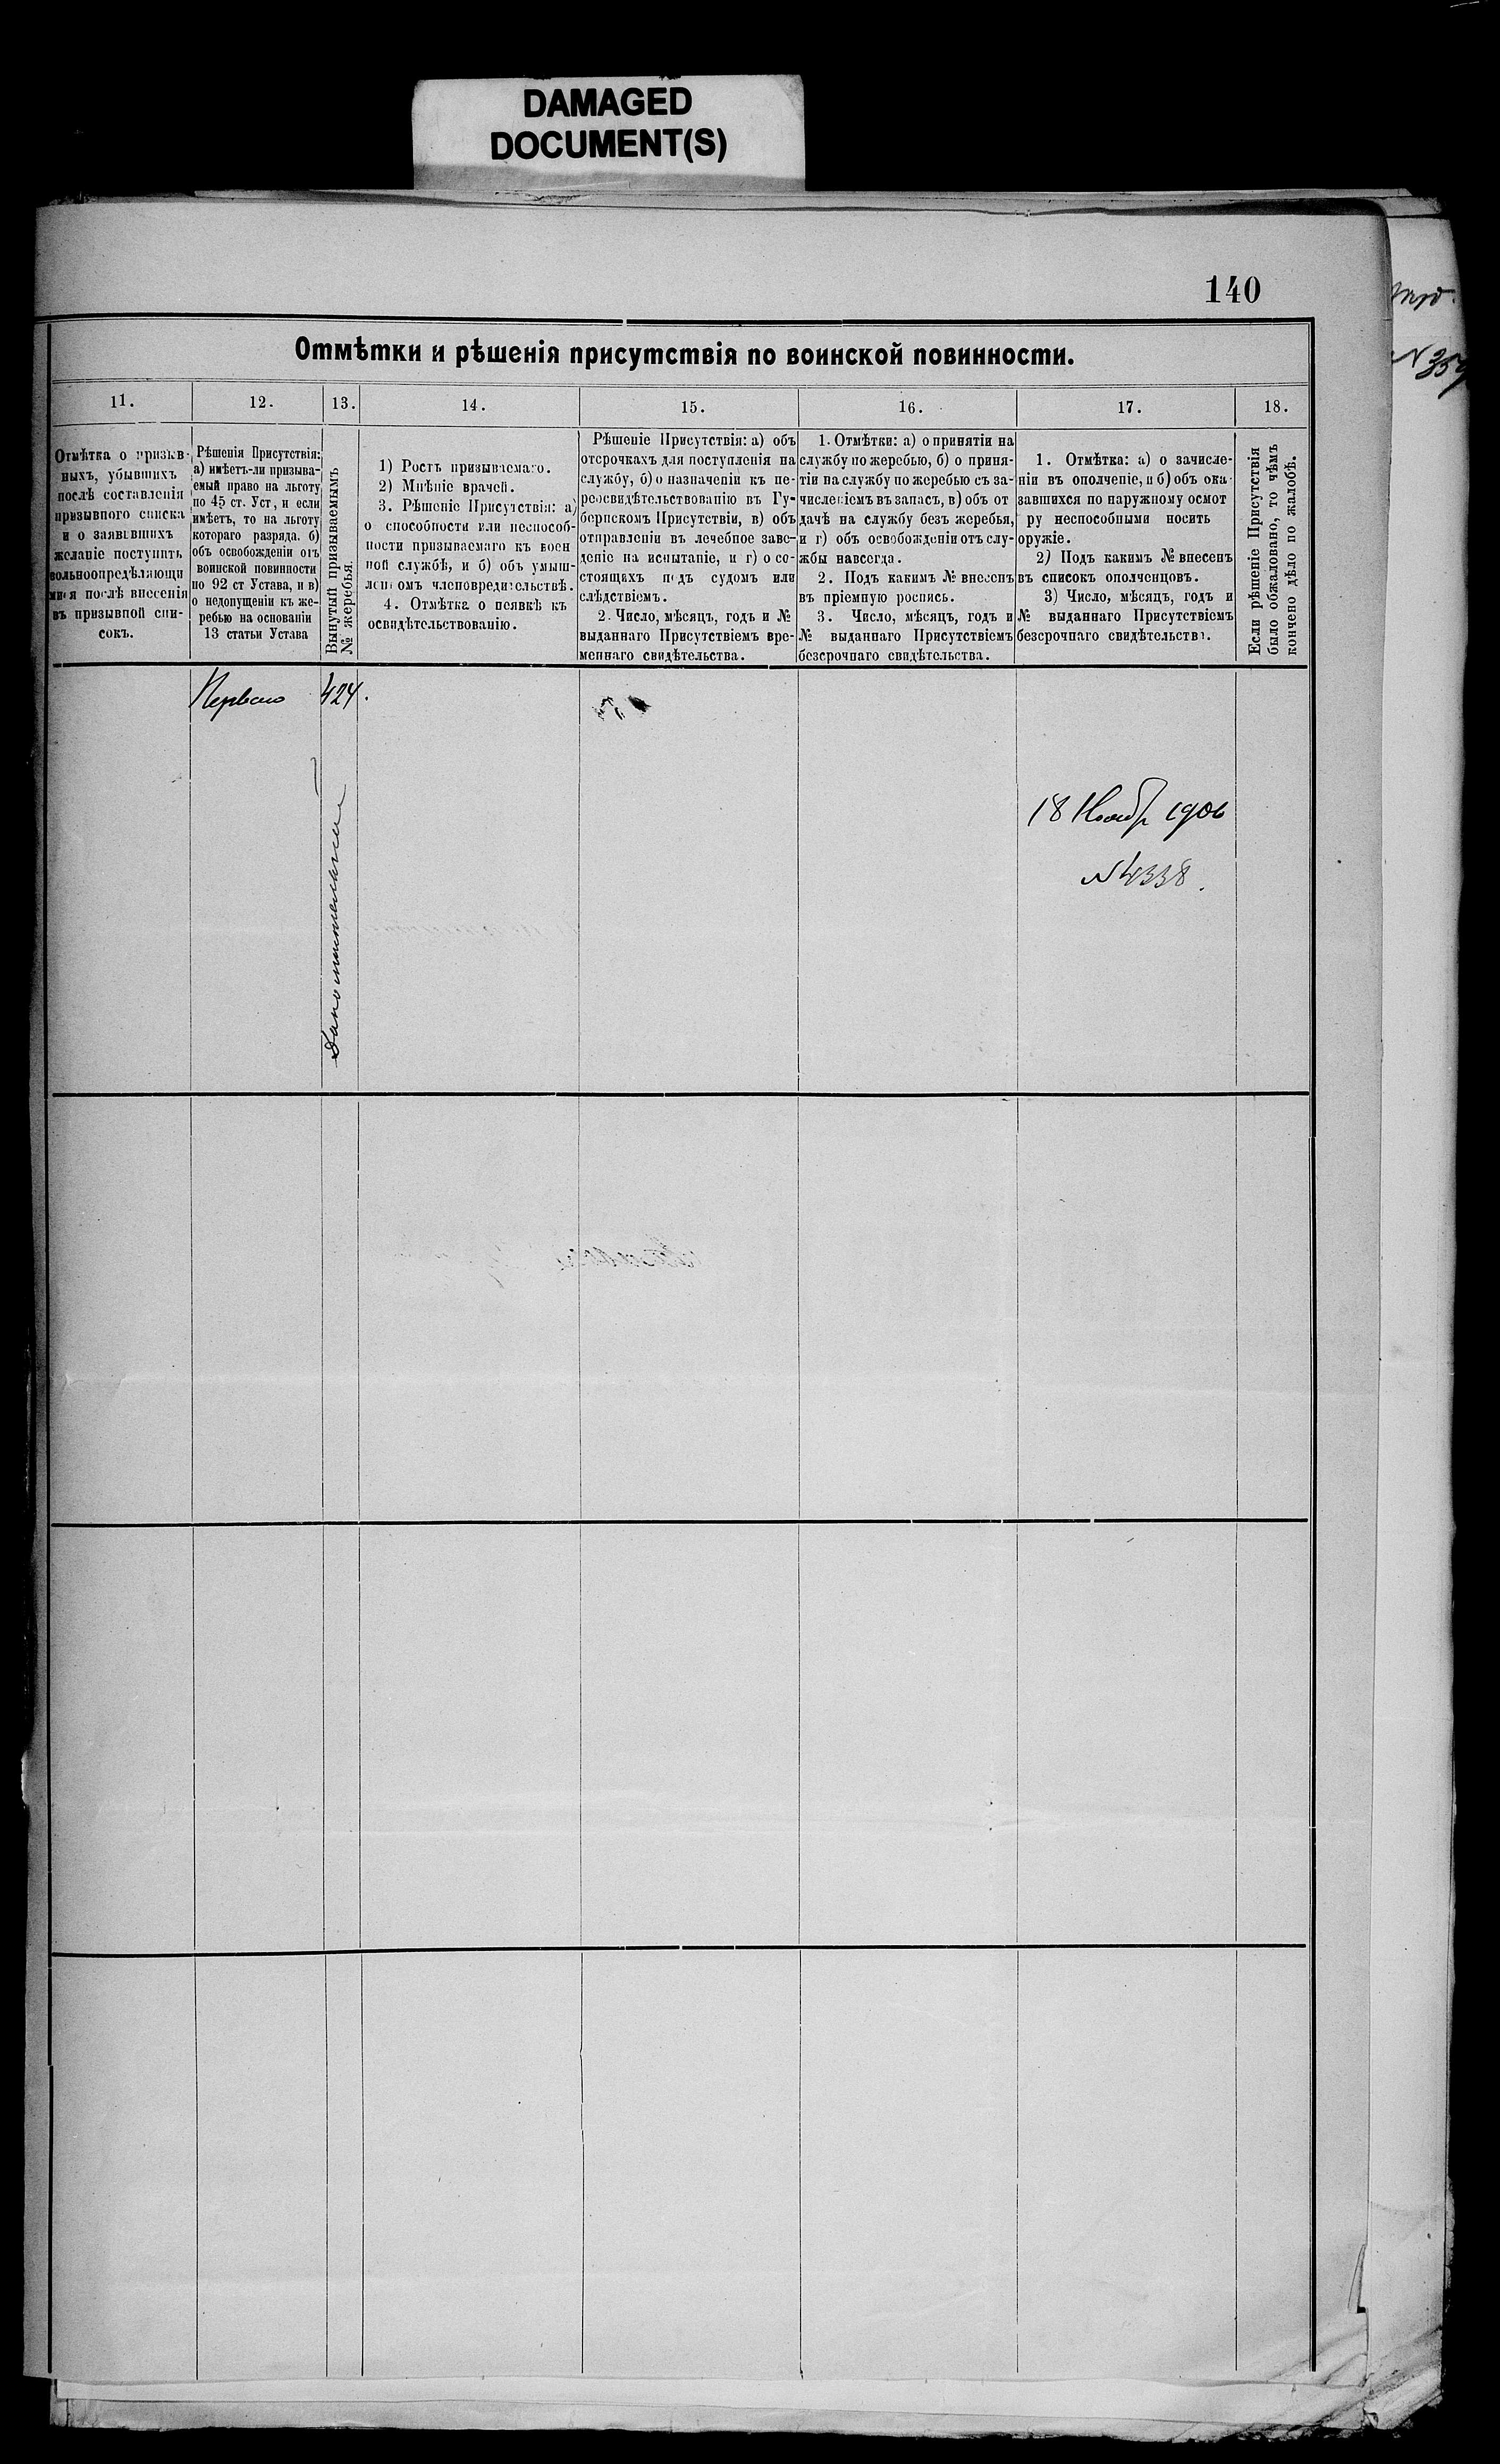 DAMAGED
DOCUMENT(S)
140
Отмѣтки и рѣшенія присутствія по воинской повинности.
11.
12.
13.
14.
15.
16.
17.
18.
Отмѣтка о призыв-
ныхъ, убывшихъ
послѣ составленія
призывного списка
и о заявившихъ
желаніе поступить
вольноопредѣляющи
мися послѣ внесенія
въ призывной спи-
сокъ.
Рѣшенія Присутствія:
а) имѣетъ-ли призыва-
емый право на льготу
по 45 ст. Уст, и если
имѣетъ, то на льготу
котораго разряда. б)
объ освобожденіи отъ
воинской повинности
по 92 ст Устава, и в)
о недопущеніи къ же-
ребью на основаніи
13 статьи Устава
Вынутый призываемымъ
№ жеребья.
1) Ростъ призываемаго.
2) Мнѣніе врачей.
3. Рѣшеніе Присутствія: а)
о способности или неспособ-
ности призываемаго къ воен
ной службѣ, и б) объ умыш-
леномъ членовредительствѣ.
4. Отмѣтка о неявкѣ къ
освидѣтельствованію.
Рѣшеніе Присутствія: а) объ
отсрочкахъ для поступленія на
службу, б) о назначеніи къ пе-
реосвидѣтельствованію въ Гу-
бернскомъ Присутствіи, в) объ
отправленіи въ лечебное заве-
деніе на испытаніе, и г) о со-
стоящихъ подъ судомъ или
слѣдствіемъ.
2. Число, мѣсяцъ, годъ и №
выданнаго Присутствіемъ вре-
меннаго свидѣтельства.
1. Отмѣтки: а) о принятіи на
службу по жеребью, б) о приня-
тіи на службу по жеребью съ за-
численіемъ въ запасъ, в) объ от
дачѣ на службу безъ жеребья,
и г) объ освобожденіи отъ слу-
жбы навсегда.
2. Подъ какимъ № внесенъ
въ пріемную роспись.
3. Число, мѣсяцъ, годъ и
№ выданнаго Присутствіемъ
безсрочнаго свидѣтельства.
1. Отмѣтка: а) о зачисле-
ніи въ ополченіе, и б) объ ока
завшихся по наружному осмот
ру неспособными носить
оружіе.
2) Подъ какимъ № внесенъ
въ списокъ ополченцовъ.
3) Число, мѣсяцъ, годъ и
№ выданнаго Присутствіемъ
безсрочнаго свидѣтельства.
Если рѣшеніе Присутствія
было обжаловано, то чѣмъ
кончено дѣло по жалобѣ.
Перваго
424.
Дополнительный
18 Ноябр 1906
N 4338.